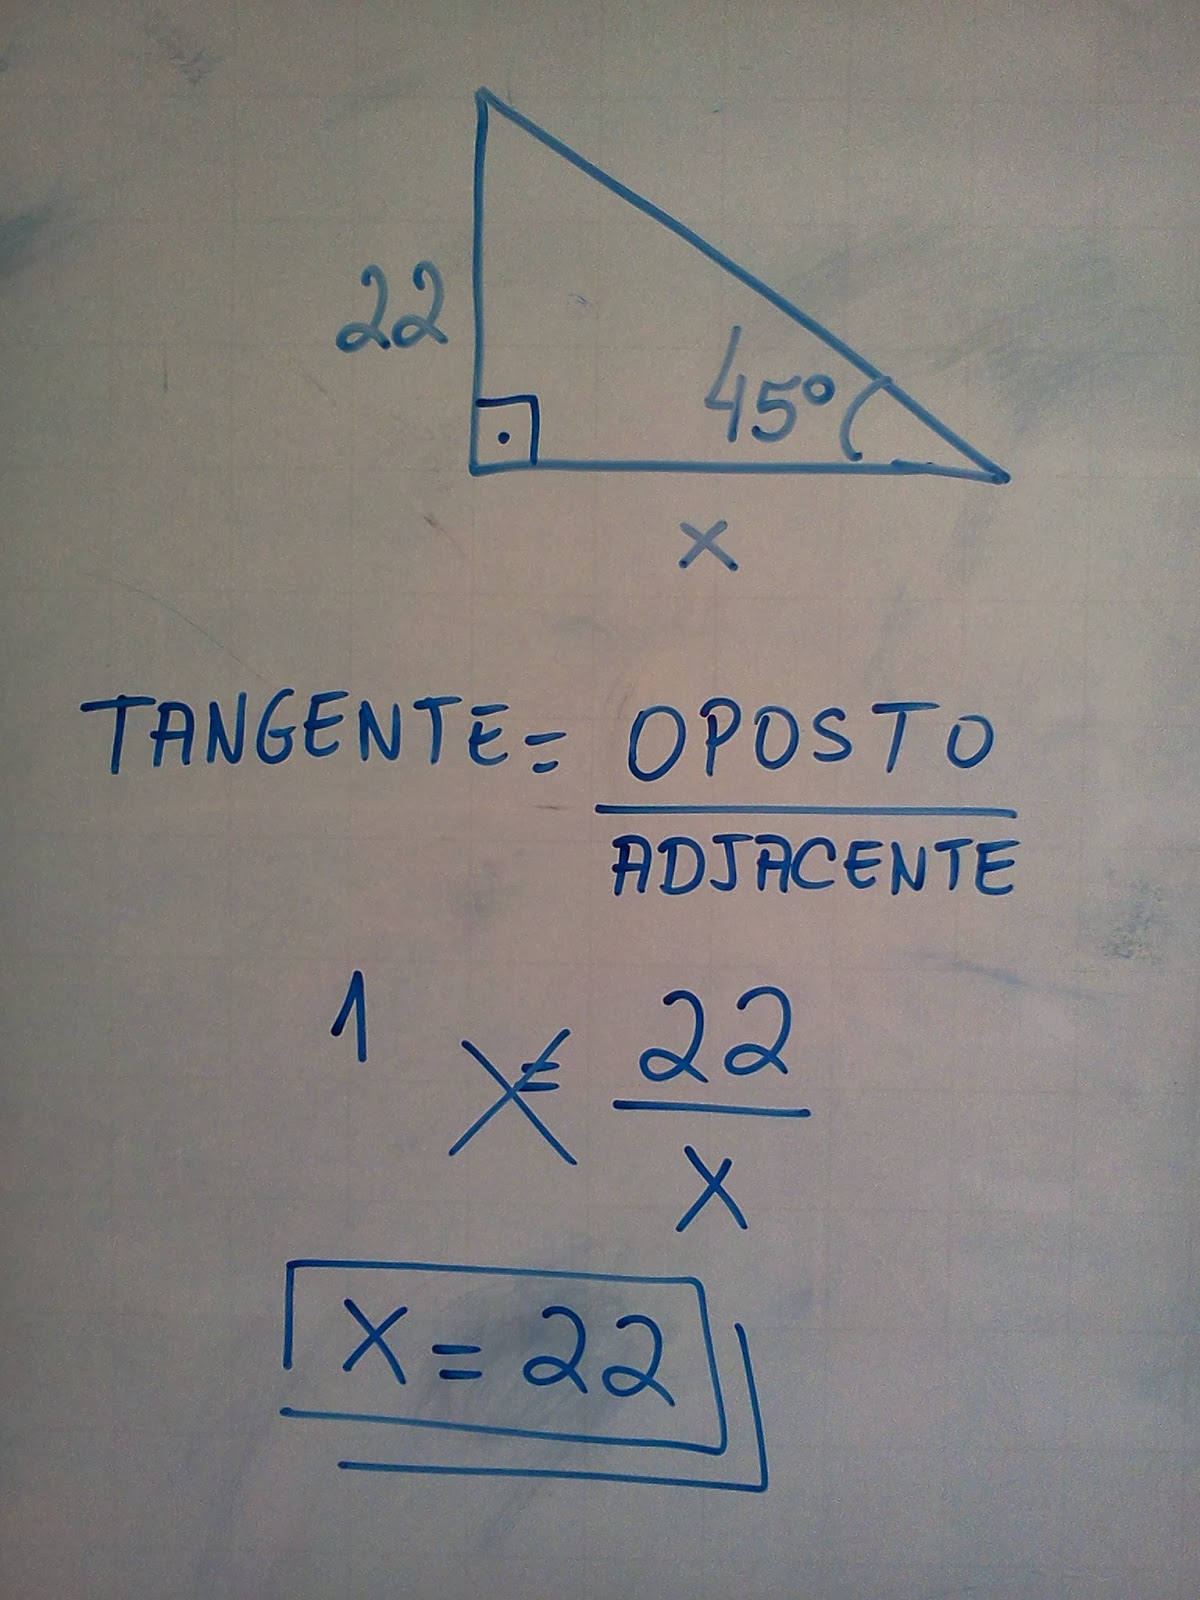 22
45°
x
TANGENTE = OPOSTO
ADJACENTE
1 = 22
x
x = 22